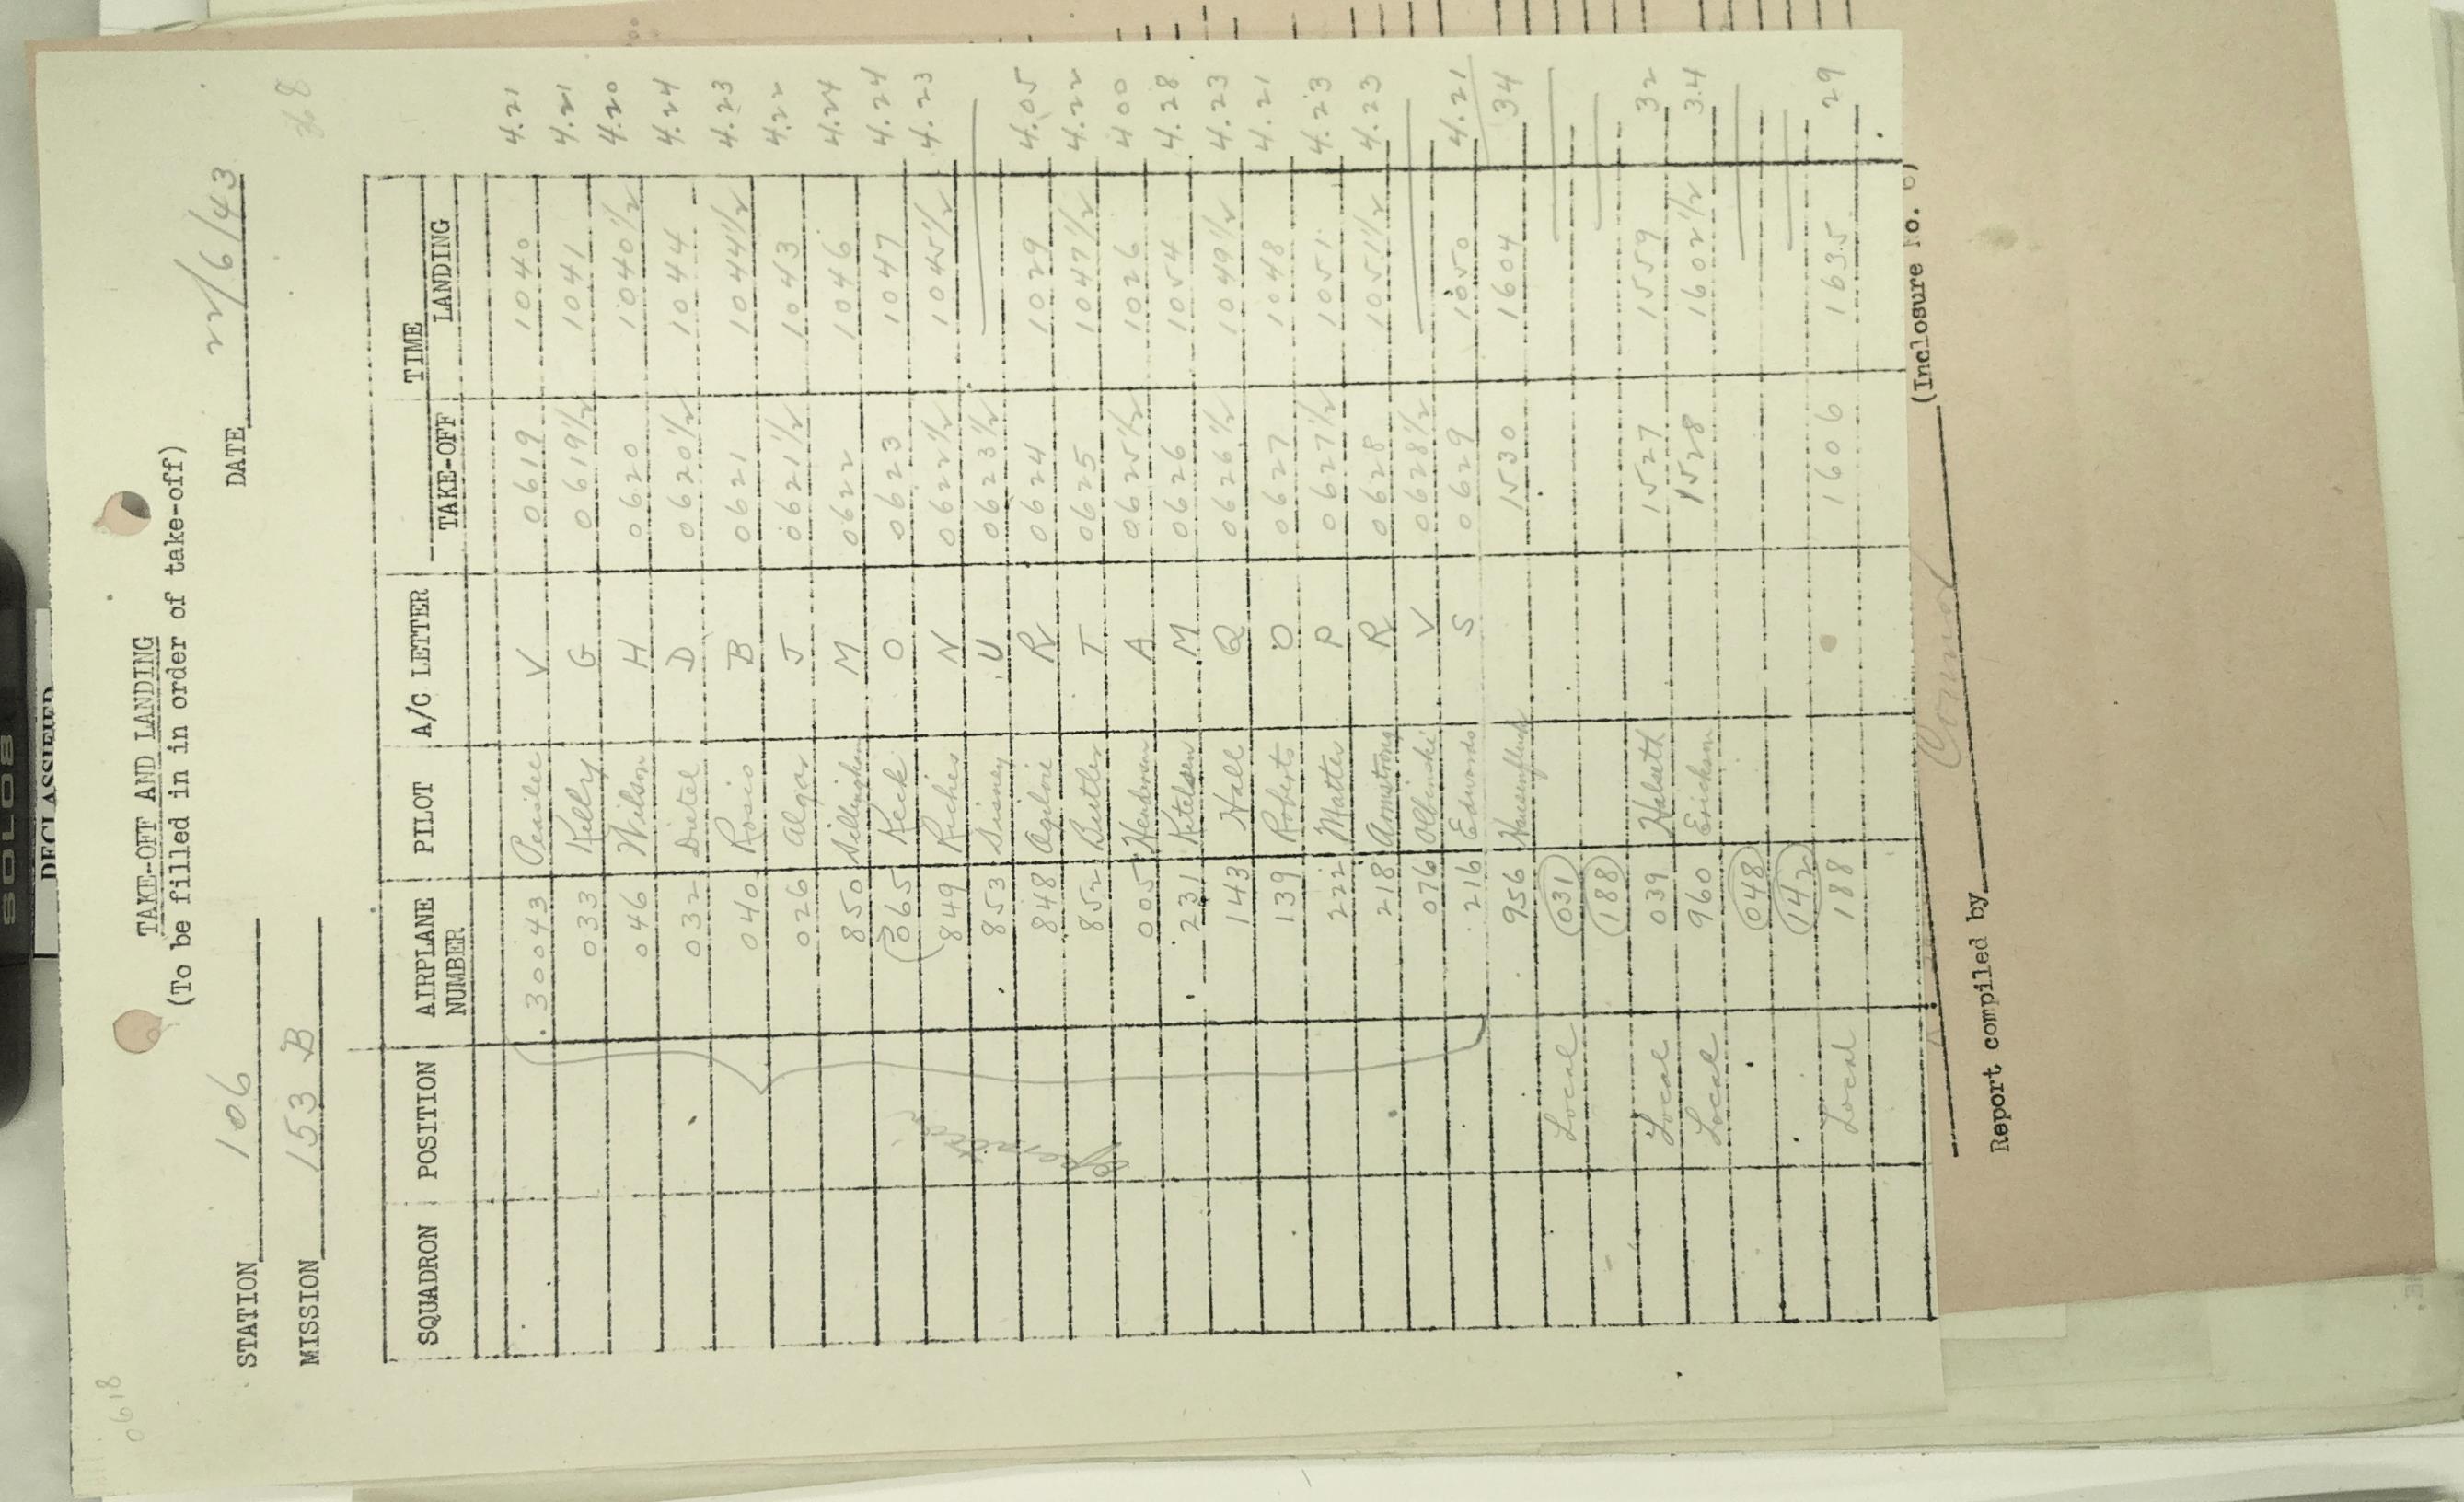 0618
TAKE-OFF AND LANDING
(To be filled in in order of take-off)
STATION 106 DATE 22/6/43
MISSION 153 B 38
SQUADRON POSITION AIRPLANE NUMBER PILOT A/C LETTER TIME TAKE-OFF LANDING
.30043 V 0619 1040 4.21
033 Kelly G 0619 1/2 1041 4.21
046 Wilson H 0620 1040 1/2 4.20
032 Dietel D 0620 1/2 1044 4.24
040 Rosio B 0621 1044 1/2 4.23
026 Algar J 0621 1/2 1043 4.22
850 M 0622 1046 4.24
065 Keck O 0623 1047 4.24
849 Riches N 0622 1/2 1045 1/2 4.23
853 Disney U 0623 1/2
848 Ogilvie R 0624 1029 4.05
852 Butler T 0625 1047 1/2 4.22
005 A 0625 1/2 1026 4 00
231 Ketelsen M 0626 1054 4.28
143 Hall Q 0626 1/2 1049 1/2 4.23
139 Roberts O 0627 1048 4.21
222 Matter P 0627 1/2 1051 4.23
218 Armstrong R 0628 1051 1/2 4.23
076 Olbinski V 0628 1/2
216 Edwards S 0629 1050 4.21
956 Hausenfluck 1530 1604 34
Local 031
188
Local 039 Halseth 1527 1559 32
Local 960 Erickson 1528 1602 1/2 34
048
142
Local 188 1606 1635 29
Report compiled by (Inclosure No. 6)
DECLASSIFIED
SOLO8